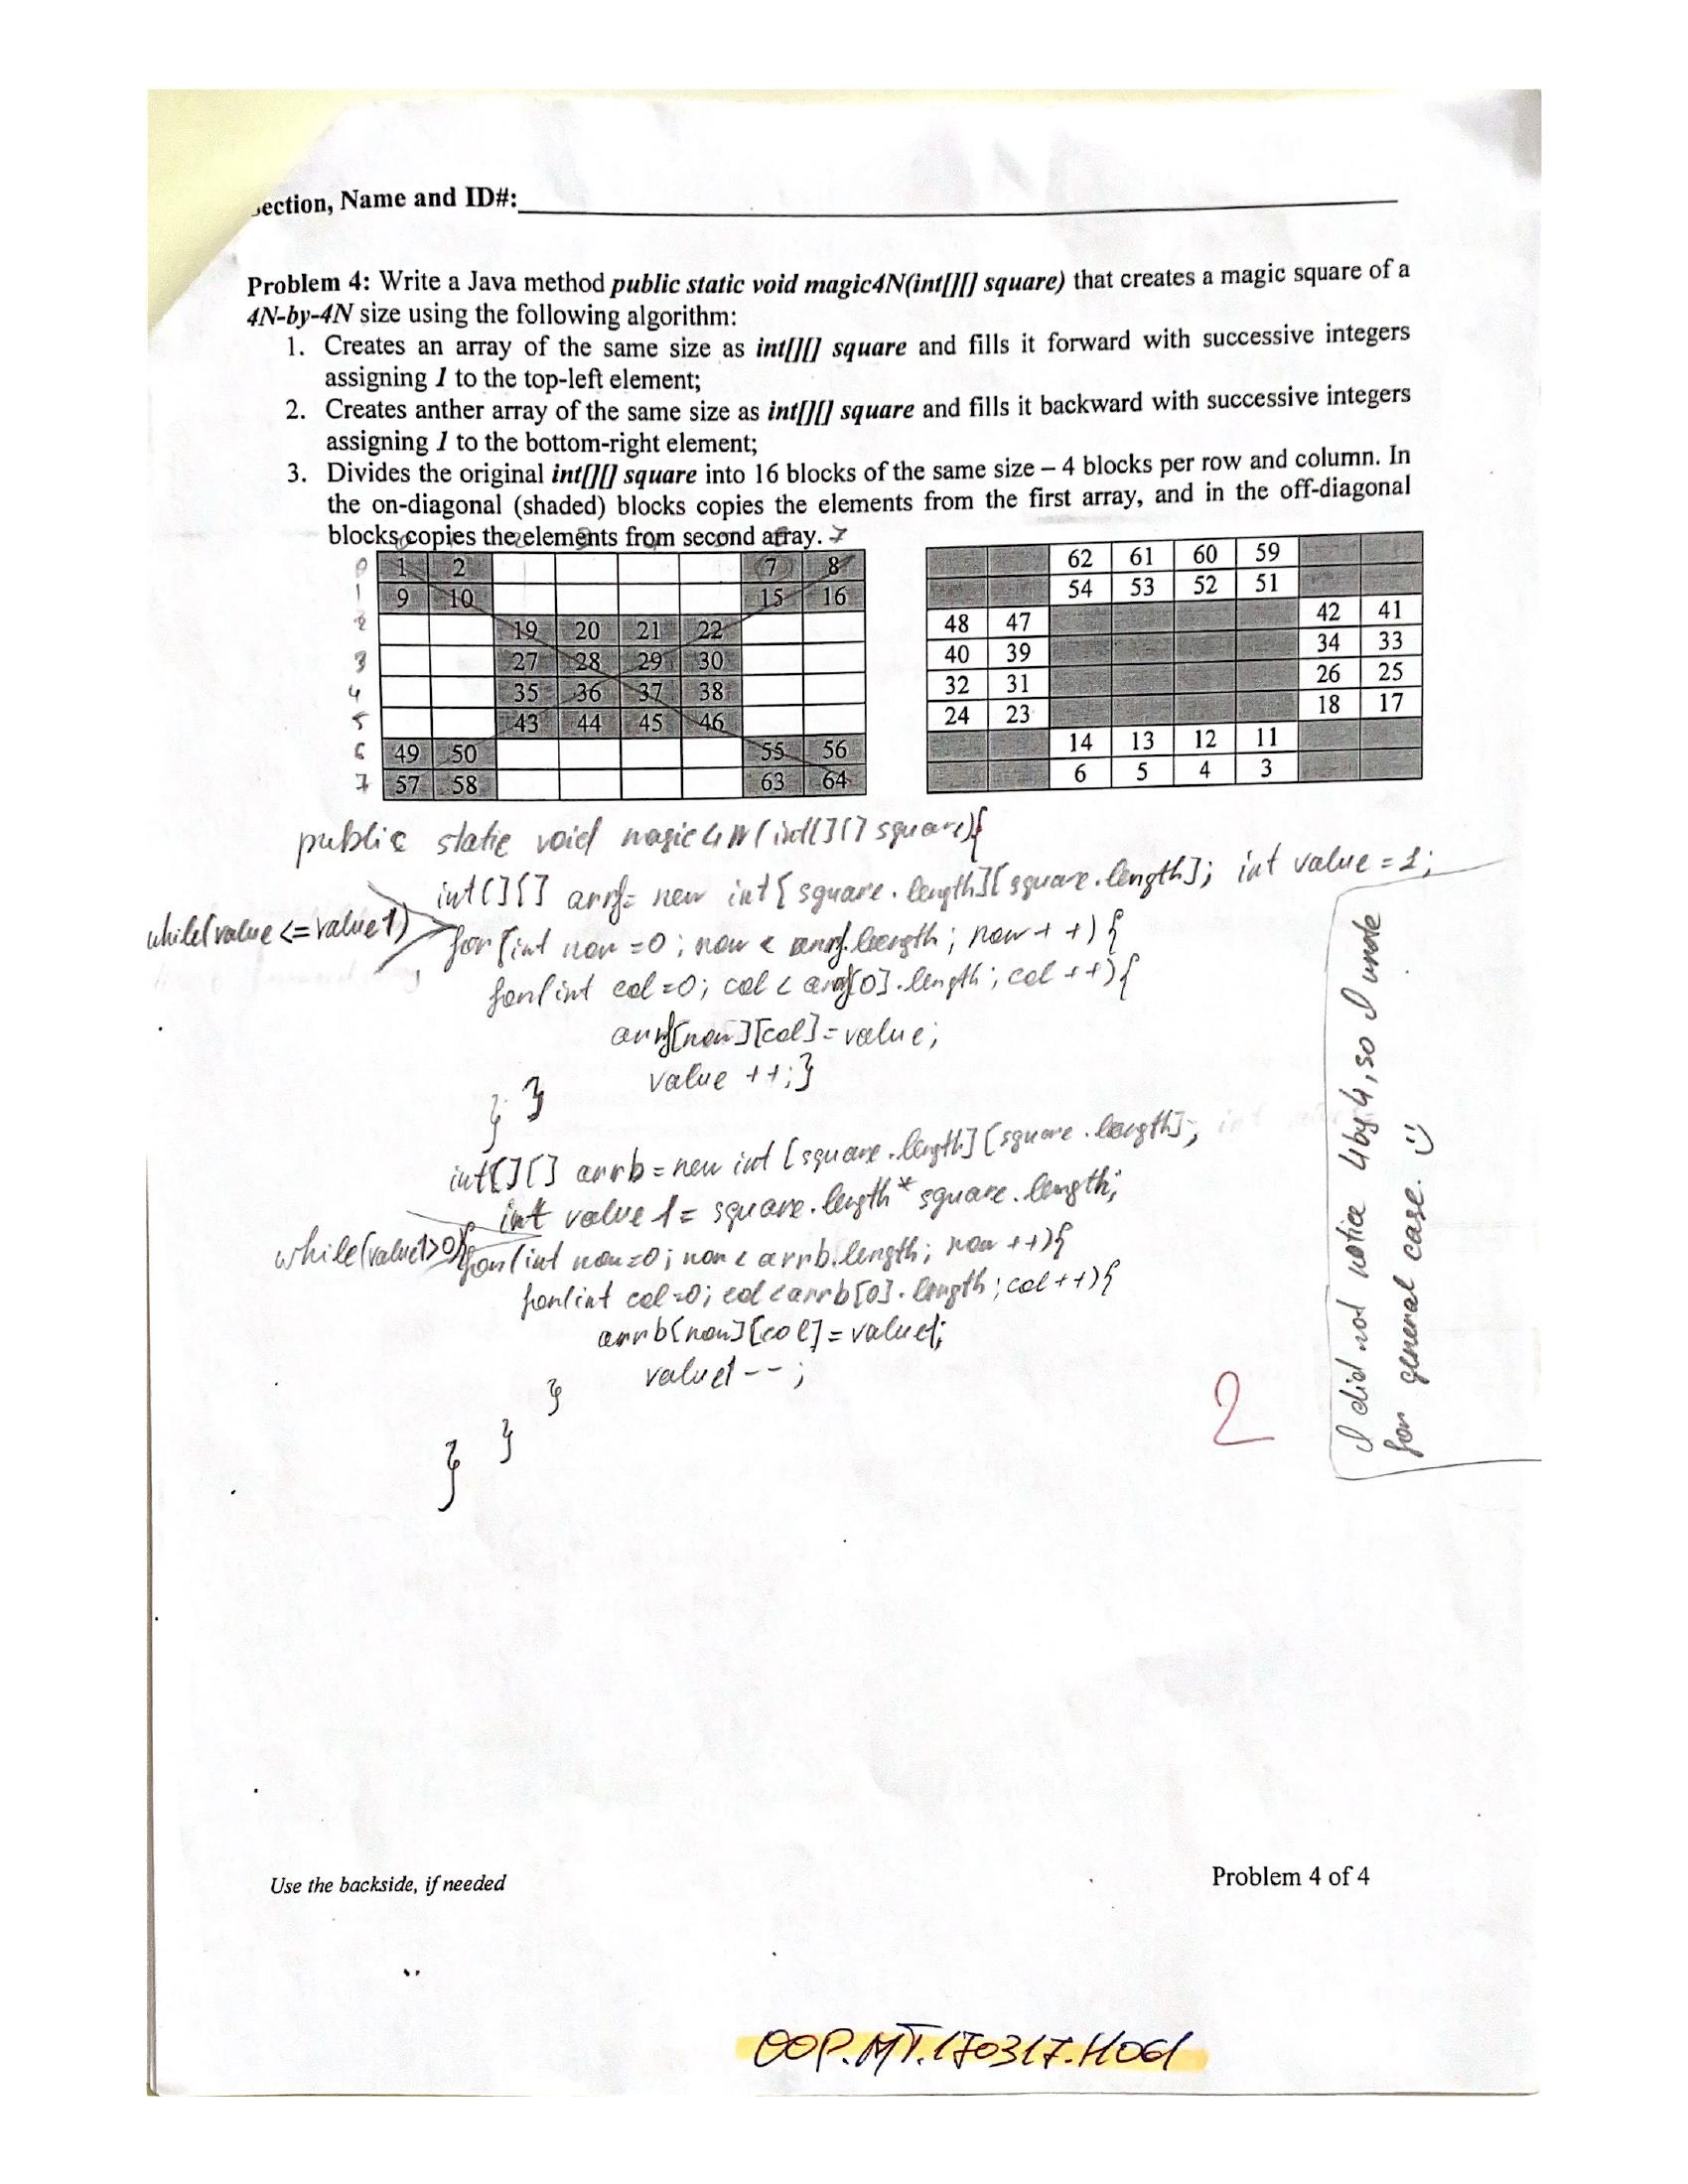 Section, Name and ID#:
Problem 4: Write a Java method public static void magic4N(int[][] square) that creates a magic square of a
4N-by-4N size using the following algorithm:
1. Creates an array of the same size as int[][] square and fills it forward with successive integers
assigning 1 to the top-left element;
2. Creates anther array of the same size as int[][] square and fills it backward with successive integers
assigning 1 to the bottom-right element;
3. Divides the original int[][] square into 16 blocks of the same size – 4 blocks per row and column. In
the on-diagonal (shaded) blocks copies the elements from the first array, and in the off-diagonal
blocks copies the elements from second array. 7
0 1 2 7 8 62 61 60 59
1 9 10 15 16 54 53 52 51
2 19 20 21 22 48 47 42 41
3 27 28 29 30 40 39 34 33
4 35 36 37 38 32 31 26 25
5 43 44 45 46 24 23 18 17
6 49 50 55 56 14 13 12 11
7 57 58 63 64 6 5 4 3
public static void magic4N(int[][] square){
int[][] arrf= new int[square.length][square.length]; int value = 1;
while(value <= value1)
for(int row = 0; row < arrf.length; row++){
for(int col = 0; col < arrf[0].length; col++){
arrf[row][col] = value;
value ++;}
} }
int[][] arrb = new int [square.length][square.length];
int value1 = square.length * square.length;
while(value1>0){
for(int row=0; row < arrb.length; row ++){
for(int col=0; col < arrb[0].length; col++){
arrb[row][col] = value1;
value1 --;
}
}
}
I did not notice 4by4, so I wrote
for general case. :)
2
Use the backside, if needed
Problem 4 of 4
OOP.MT.170317.H06